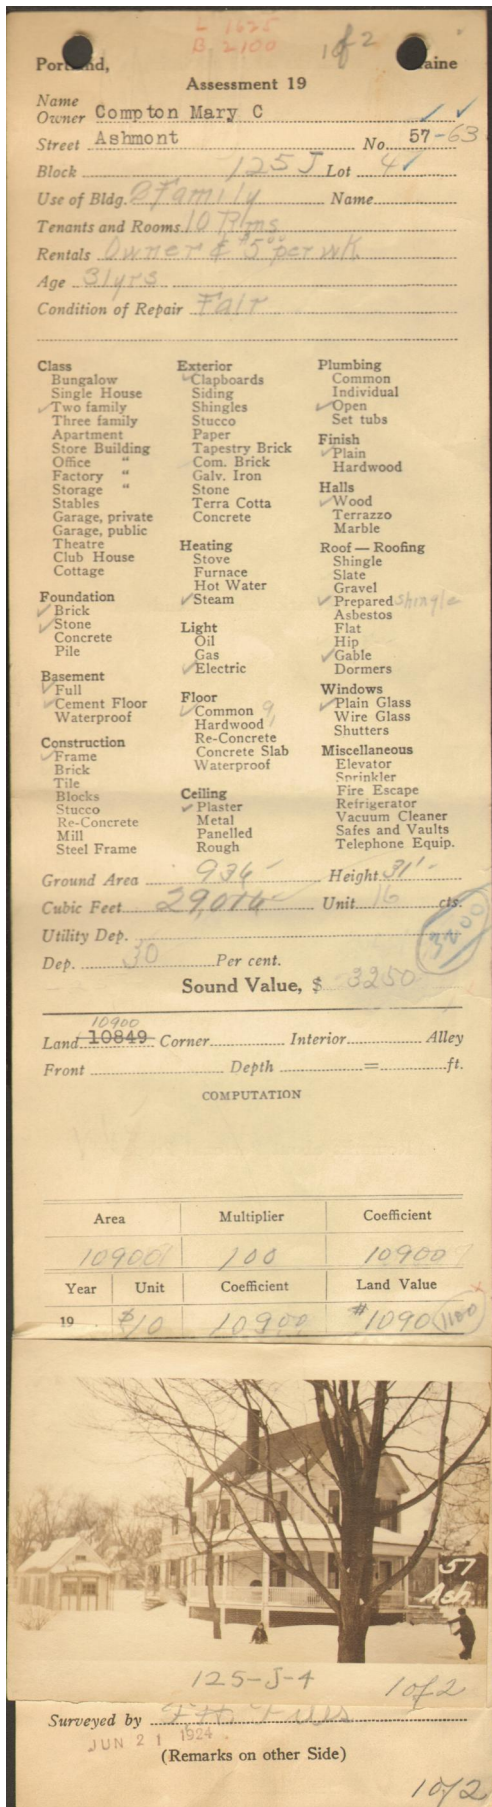 L 1625
B 2100
1 of 2
Portland, Maine
Assessment 19
Name
Owner Compton Mary C
Street Ashmont No. 57-63
Block 125 J Lot 4
Use of Bldg. 2 Family Name
Tenants and Rooms 10 Rms
Rentals Owner & $5.00 per wk
Age 31 yrs
Condition of Repair Fair
Class
Bungalow
Single House
✓Two family
Three family
Apartment
Store Building
Office "
Factory "
Storage "
Stables
Garage, private
Garage, public
Theatre
Club House
Cottage
Foundation
✓Brick
✓Stone
Concrete
Pile
Basement
✓Full
✓Cement Floor
Waterproof
Construction
✓Frame
Brick
Tile
Blocks
Stucco
Re-Concrete
Mill
Steel Frame
Exterior
✓Clapboards
Siding
Shingles
Stucco
Paper
Tapestry Brick
Com. Brick
Galv. Iron
Stone
Terra Cotta
Concrete
Heating
Stove
Furnace
Hot Water
✓Steam
Light
Oil
Gas
✓Electric
Floor
✓Common
Hardwood
Re-Concrete
Concrete Slab
Waterproof
Ceiling
✓Plaster
Metal
Panelled
Rough
Plumbing
Common
Individual
✓Open
Set tubs
Finish
✓Plain
Hardwood
Halls
✓Wood
Terrazzo
Marble
Roof — Roofing
Shingle
Slate
Gravel
✓Prepared shingle
Asbestos
Flat
Hip
✓Gable
Dormers
Windows
✓Plain Glass
Wire Glass
Shutters
Miscellaneous
Elevator
Sprinkler
Fire Escape
Refrigerator
Vacuum Cleaner
Safes and Vaults
Telephone Equip.
Ground Area 936 Height 31'
Cubic Feet 29,016 Unit 16 cts.
Utility Dep.
3200
Dep. 30 Per cent.
Sound Value, $ 3250
10900
Land 10849 Corner Interior Alley
Front Depth = ft.
COMPUTATION
Area Multiplier Coefficient
10900 100 10900
Year Unit Coefficient Land Value
19 $10 10900 #1090 1100
57
Ash.
125-J-4 1 of 2
Surveyed by
JUN 21 1924
(Remarks on other Side)
1 of 2